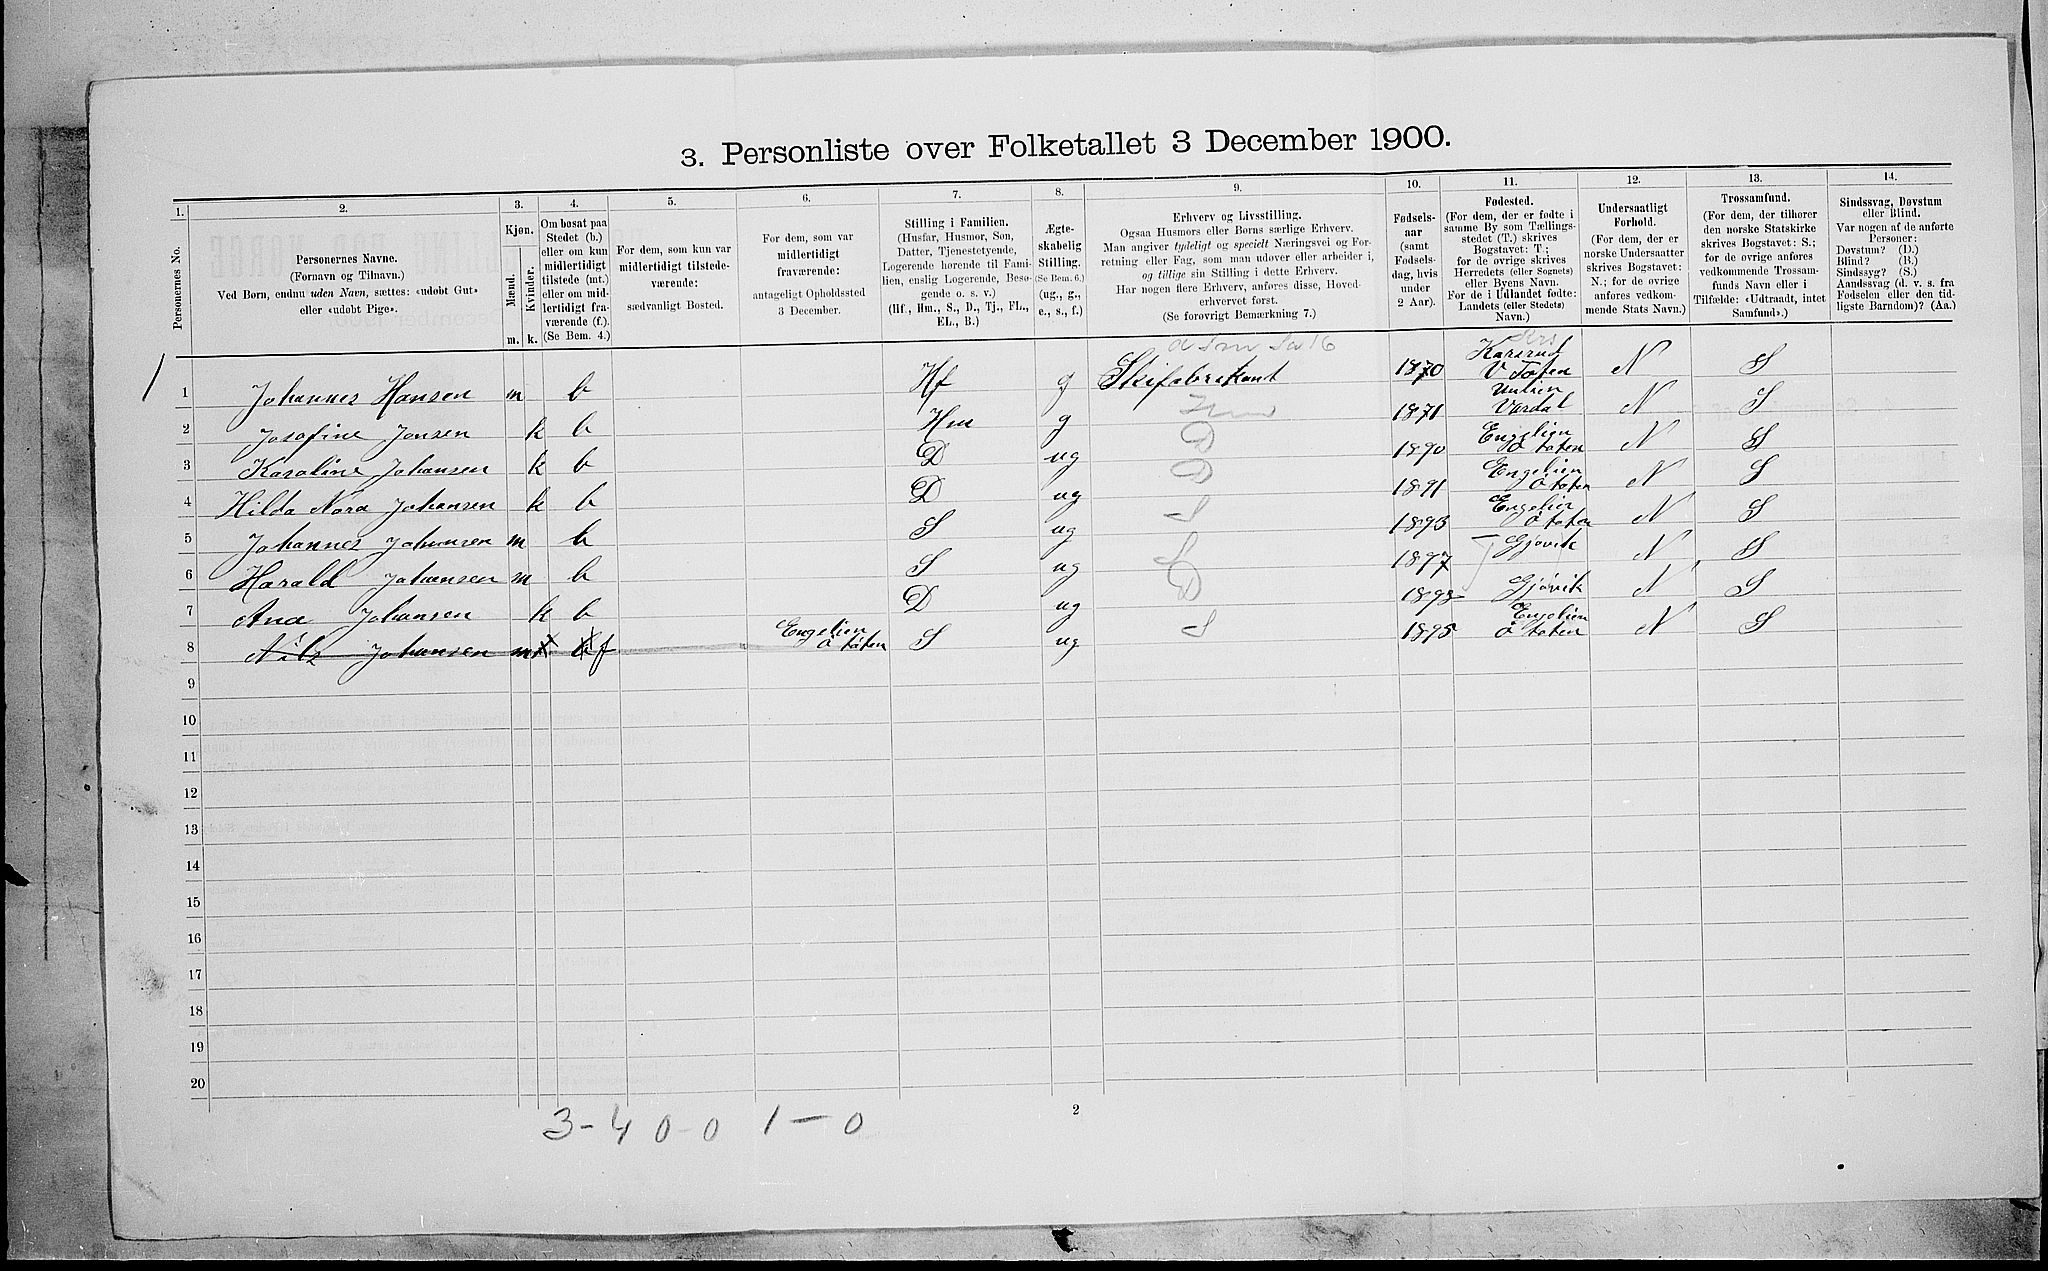 3. Personliste over Folketallet 3 December 1900.
1. 2. 3. 4. 5. 6. 7. 8. 9. 10. 11. 12. 13. 14.
Personernes No.
Personernes Navne.
(Fornavn og Tilnavn.)
Ved Børn, endnu uden Navn, sættes: «udøbt Gut»
eller «udøbt Pige».
Kjøn.
Mænd.
Kvinder.
m. k.
Om bosat paa
Stedet (b.)
eller om kun
midlertidigt
tilstede (mt.)
eller om mid-
lertidigt fra-
værende (f.)
(Se Bem. 4.)
For dem, som kun var
midlertidigt tilstede-
værende:
sædvanligt Bosted.
For dem, som var
midlertidigt
fraværende:
antageligt Opholdssted
3 December.
Stilling i Familien.
(Husfar, Husmor, Søn,
Datter, Tjenestetyende,
Logerende hørende til Fami-
lien, enslig Logerende, Besø-
gende o. s. v.)
(Hf., Hm., S., D., Tj., FL.,
EL., B.)
Ægte-
skabelig
Stilling.
(Se Bem. 6.)
(ug., g.,
e., s., f.)
Erhverv og Livsstilling.
Ogsaa Husmors eller Børns særlige Erhverv.
Man angiver tydeligt og specielt Næringsvei og For-
retning eller Fag, som man udøver eller arbeider i,
og tillige sin Stilling i dette Erhverv.
Har nogen flere Erhverv, anføres disse, Hoved-
erhvervet først.
(Se forøvrigt Bemærkning 7.)
Fødsels-
aar
(samt
Fødsels-
dag, hvis
under
2 Aar).
Fødested.
(For dem, der er fødte i
samme By som Tællings-
stedet (T.) skrives
Bogstavet: T.;
for de øvrige skrives
Herredets (eller Sognets)
eller Byens Navn.
For de i Udlandet fødte:
Landets (eller Stedets)
Navn.)
Undersaatligt
Forhold.
(For dem, der er
norske Undersaatter
skrives Bogstavet:
N.; for de øvrige
anføres vedkom-
mende Stats Navn.)
Trossamfund.
(For dem, der tilhører
den norske Statskirke
skrives Bogstavet: S.;
for de øvrige anføres
vedkommende Trossam-
funds Navn eller i
Tilfælde: «Udtraadt, intet
Samfund».)
Sindssvag, Døvstum
eller Blind.
Var nogen af de anførte
Personer:
Døvstum? (D.)
Blind? (B.)
Sindssyg? (S.)
Aandssvag (d. v. s. fra
Fødselen eller den tid-
ligste Barndom)? (Aa.)
1
1 Johannes Hansen m b Hf g Skifabrikant 1870 Karsrud V Toten N S
2 Josefine Jensen k b Hm g 1871 Vardal N S
3 Karoline Johansen k b D ug D 1890 Engelien Ø toten N S
4 Hilda Nora Johansen k b D ug D 1891 Engelien Ø toten N S
5 Johannes Johansen m b S ug S 1893 Engelien Ø toten N S
6 Harald Johansen m b S ug S 1897 Gjøvik N S
7 Ana Johansen k b D ug D 1898 Gjøvik N S
8 Nils Johansen m f Engelien Ø toten S ug S 1895 Engelien Ø toten N S
9
10
11
12
13
14
15
16
17
18
19
20
3-4 0-0 1-0
2